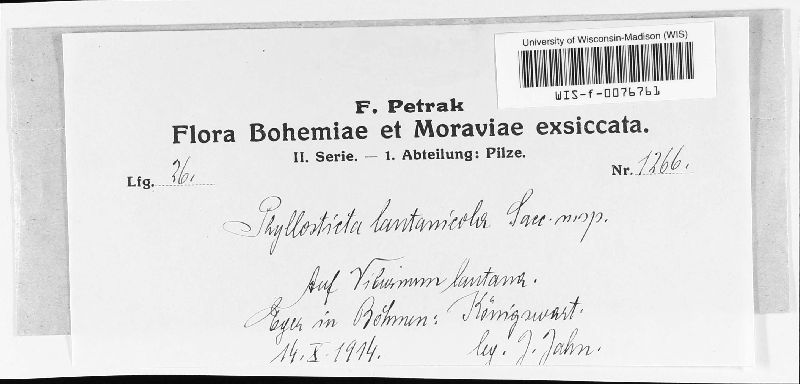 University of Wisconsin-Madison (WIS)
WIS-f-0076761
F. Petrak
Flora Bohemiae et Moraviae exsiccata.
II. Serie. — 1. Abteilung: Pilze.
Lfg. 26. Nr. 1266.
Phyllosticta lantanicola Sacc. n. sp.
Auf Viburnum lantana.
Eger in Böhmen: Königswart.
14. X. 1914. leg. J. Jahn.